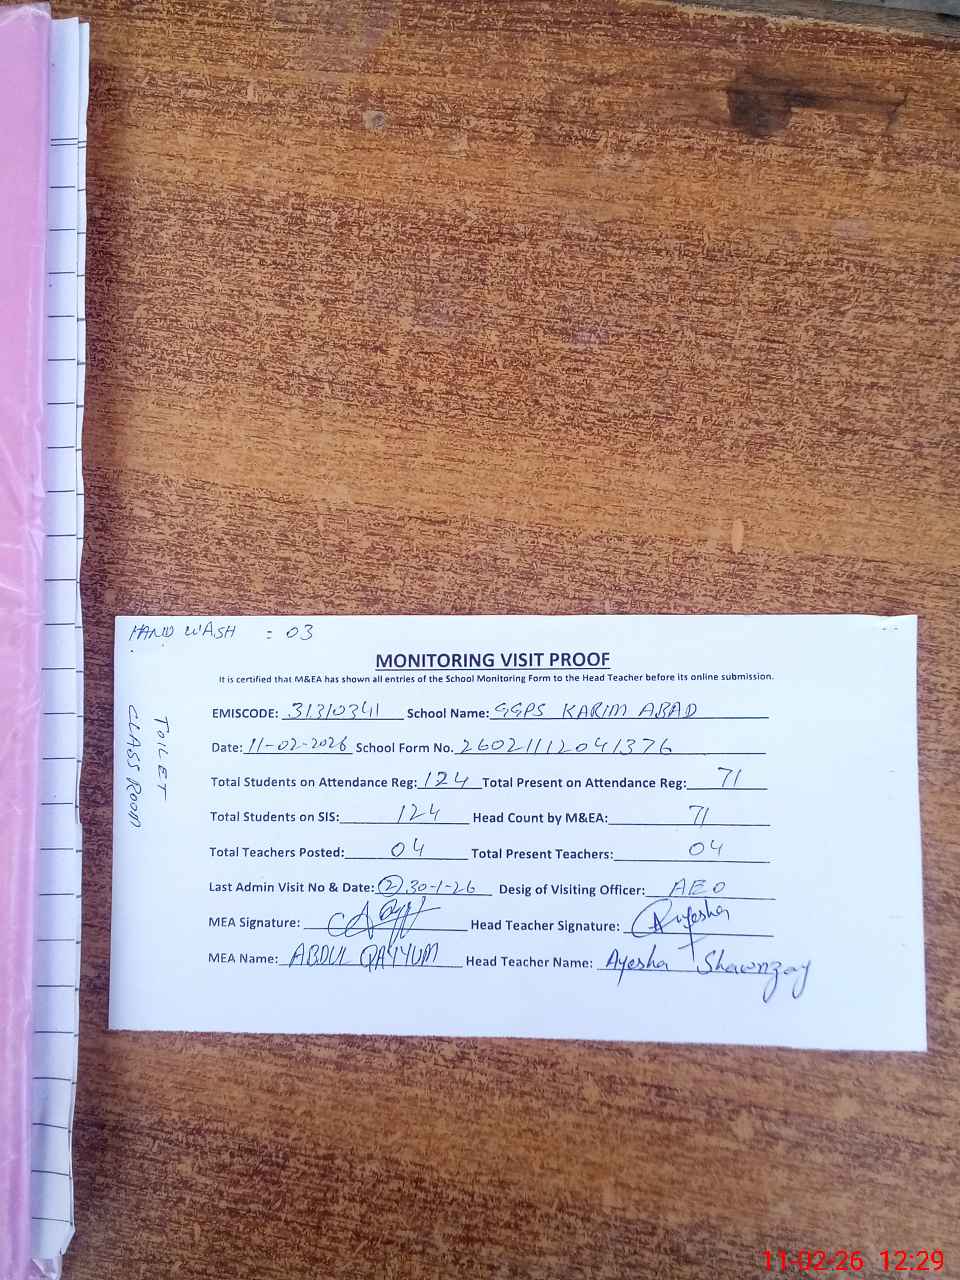 HAND WASH : 03
MONITORING VISIT PROOF
It is certified that M&EA has shown all entries of the School Monitoring Form to the Head Teacher before its online submission.
EMISCODE: 31310341 School Name: GGPS KARIM ABAD
Date: 11-02-2026 School Form No. 26021112041376
Total Students on Attendance Reg: 124 Total Present on Attendance Reg: 71
Total Students on SIS: 124 Head Count by M&EA: 71
Total Teachers Posted: 04 Total Present Teachers: 04
Last Admin Visit No & Date: (2) 30-1-26 Desig of Visiting Officer: AEO
MEA Signature: Head Teacher Signature: Ayesha
MEA Name: ABDUL QAYYUM Head Teacher Name: Ayesha Shawnzay
TOILET
CLASS ROOM
11-02-26 12:29